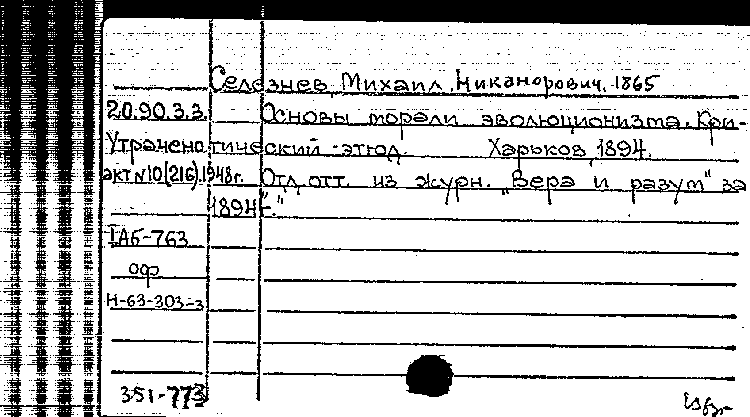 Селезнев, Михаил Никанорович, 1865
20.90.3.3. Основы морали эволюционизма. Кри-
Утрачено тический этюд. Харьков, 1894.
акт №10(216).1948г. Отд. отт. из журн. „Вера и разум" за
1894 г."
IАб-763
оф
Н-63-303-3
351-773